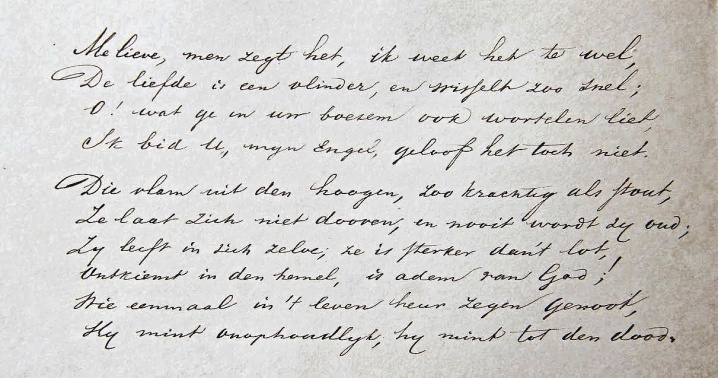 Melieve, men zegt het, ik weet het te wel,
De liefde is een vlinder, en wisselt zoo snel;
O! wat ge in uw boesem ook wortelen liet,
Ik bid U, myn Engel, geloof het toch niet.
Die vlam uit den hoogen, zoo krachtig als stout,
Ze laat zich niet dooven, en nooit wordt zy oud;
Zy leeft in zich zelve; ze is sterker dan 't lot,
Ontkiemt in den hemel, is adem van God;!
Wie eenmaal in 't leven heur zegen genoot,
Hy mint onophoudlyk, hy mint tot den dood.